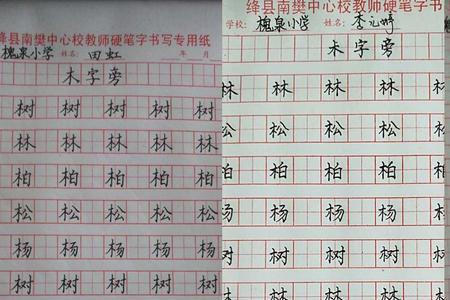 绛县南樊中心校教师硬笔字书写专用纸
槐泉小学 姓名: 田虹 年 月
木字旁
树 树 树 树 树
林 林 林 林 林
柏 柏 柏 柏 柏
松 松 松 松 松
杨 杨 杨 杨 杨
树 树 树 树 树
绛县南樊中心校教师硬笔字书
学校: 槐泉小学 姓名:
木字旁
林 林 林 林 林
松 松 松 松 松
柏 柏 柏 柏 柏
杨 杨 杨 杨 杨
树 树 树 树 树
树 树 树 树 树